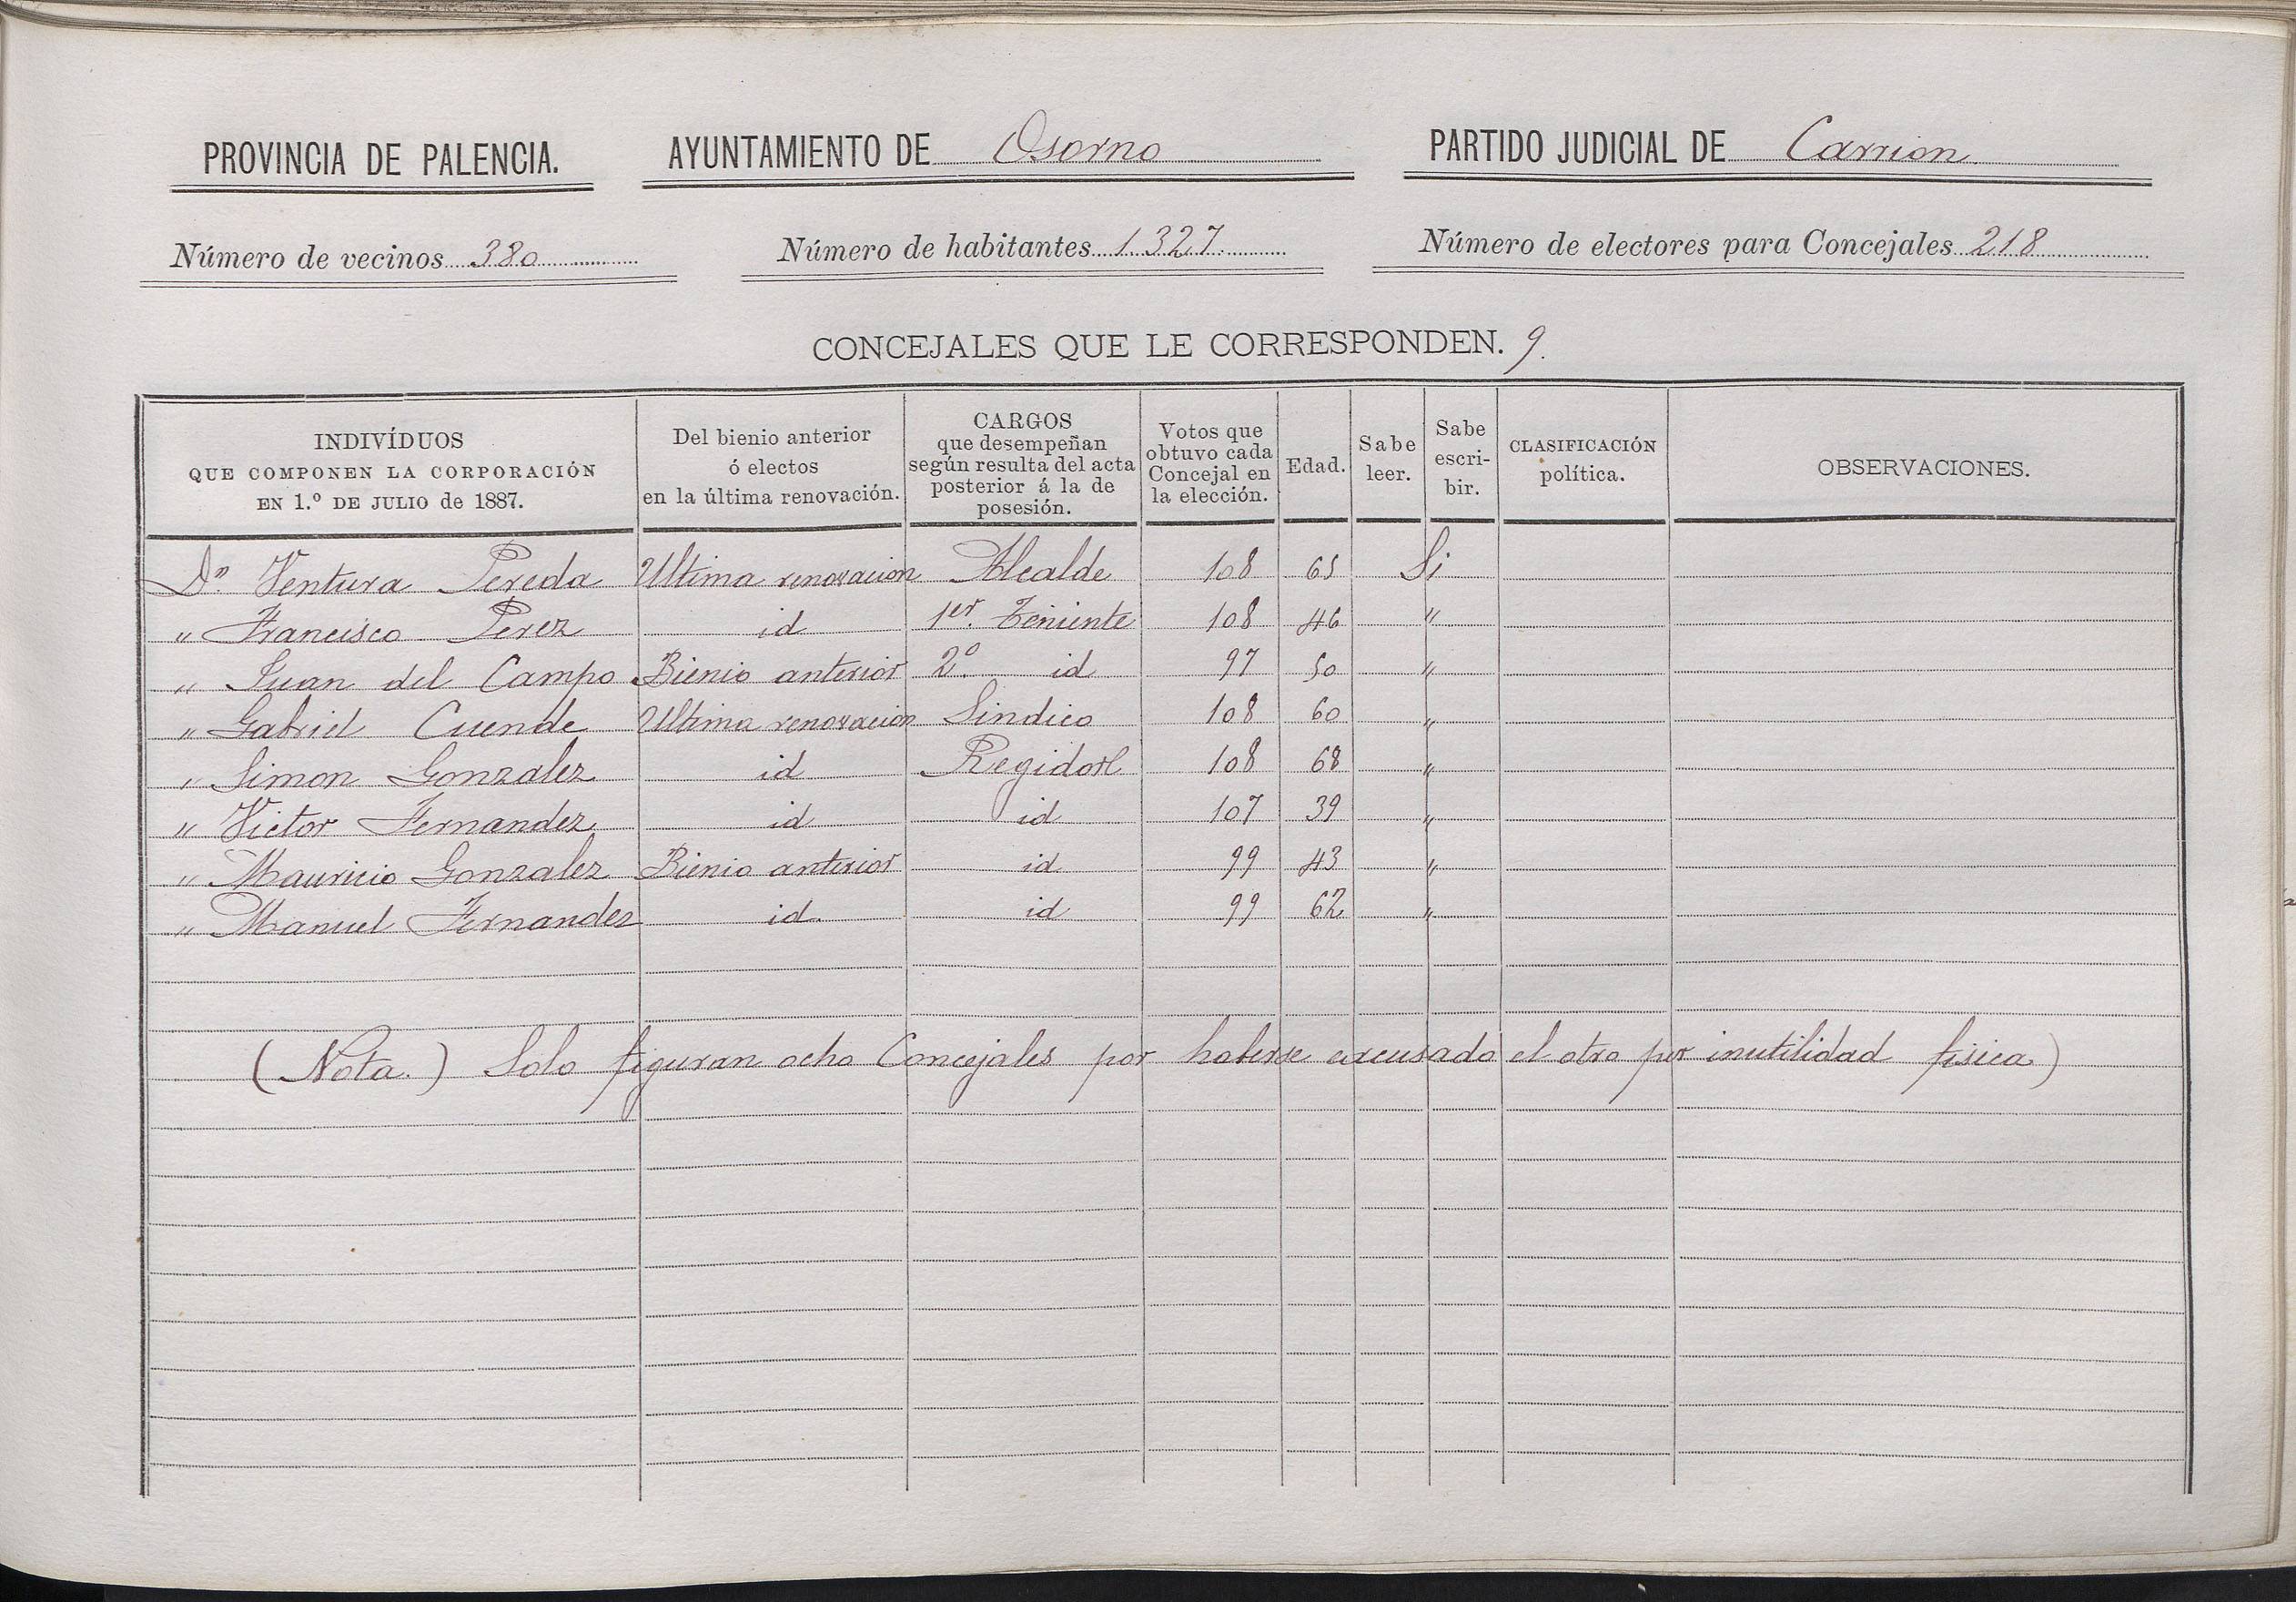 PROVINCIA DE PALENCIA. AYUNTAMIENTO DE Osorno PARTIDO JUDICIAL DE Carrion
Número de vecinos 380 Número de habitantes 1.327 Número de electores para Concejales 218
CONCEJALES QUE LE CORRESPONDEN. 9.
INDIVÍDUOS QUE COMPONEN LA CORPORACIÓN EN 1.º DE JULIO de 1887. Del bienio anterior ó electos en la última renovación. CARGOS que desempeñan según resulta del acta posterior á la de posesión. Votos que obtuvo cada Concejal en la elección. Edad. Sabe leer. Sabe escribir. CLASIFICACIÓN política. OBSERVACIONES.
Dn. Ventura Pereda Ultima renovacion Alcalde 108 65 Si
" Francisco Perez id 1er. Teniente 108 46 "
" Juan del Campo Bienio anterior 2º. id 97 50 "
" Gabriel Cuende Ultima renovacion Sindico 108 60 "
" Simon Gonzalez id Regidor 108 68 "
" Victor Fernandez id id 107 39 "
" Mauricio Gonzalez Bienio anterior id 99 43 "
" Manuel Fernandez id. id 99 62 "
(Nota.) Solo figuran ocho Concejales por haberse excusado el otro por inutilidad fisica)